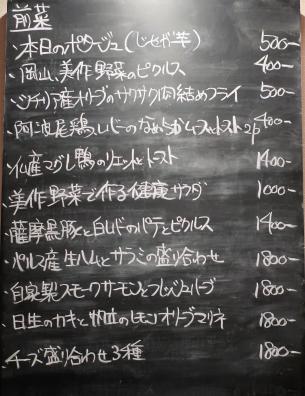 前菜
・本日のポタージュ(じゃが芋) 500-
・岡山、美作野菜のピクルス 400-
・シチリア産オリーブのサクサク肉詰めフライ 500-
・阿波尾鶏レバーのなめらかムース トースト2p 400-
・仏産マグレ鴨のリエットとトースト 1400-
・美作野菜で作る健康サラダ 1000-
・薩摩黒豚と白レバのパテとピクルス 1400-
・パルマ産生ハムとサラミの盛り合わせ 1800-
・自家製スモークサーモンとフレッシュハーブ 1800-
・日生のカキと のレモンオリーブマリネ 1800-
・チーズ盛り合わせ3種 1800-